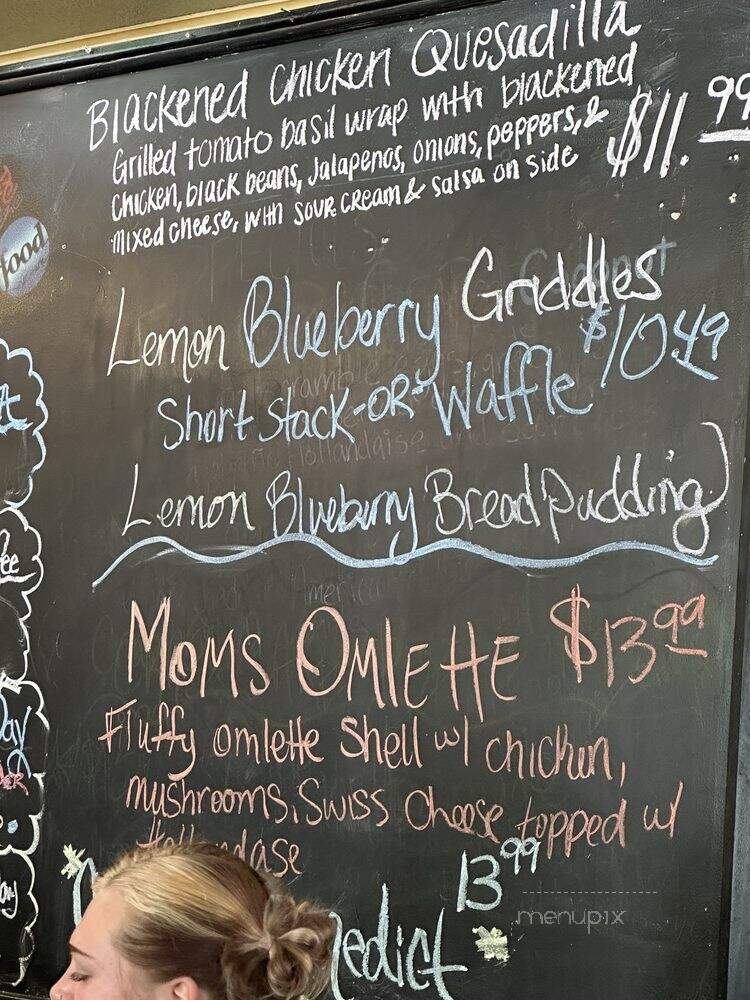 Blackened Chicken Quesadilla
Grilled tomato basil wrap with blackened
chicken, black beans, Jalapenos, onions, peppers, &
mixed cheese, with sour cream & salsa on side
$11.99
Lemon Blueberry Griddles
$10.49
Short Stack -OR- Waffle
Lemon Blueburry Bread Pudding
Moms Omlette $13.99
Fluffy omlette Shell w/ chicken,
mushrooms, Swiss Cheese topped w/
13.99
edict
menupix
food